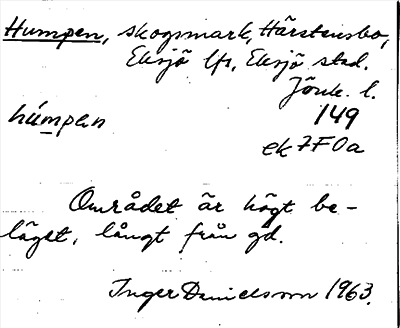 Humpen, skogsmark, Härstensbo,
Eksjö lfs, Eksjö stad.
Jönk. l.
húmpen
149
ek 7F0a
Området är högt be-
läget, långt från gd.
Inger Danielsson 1963.